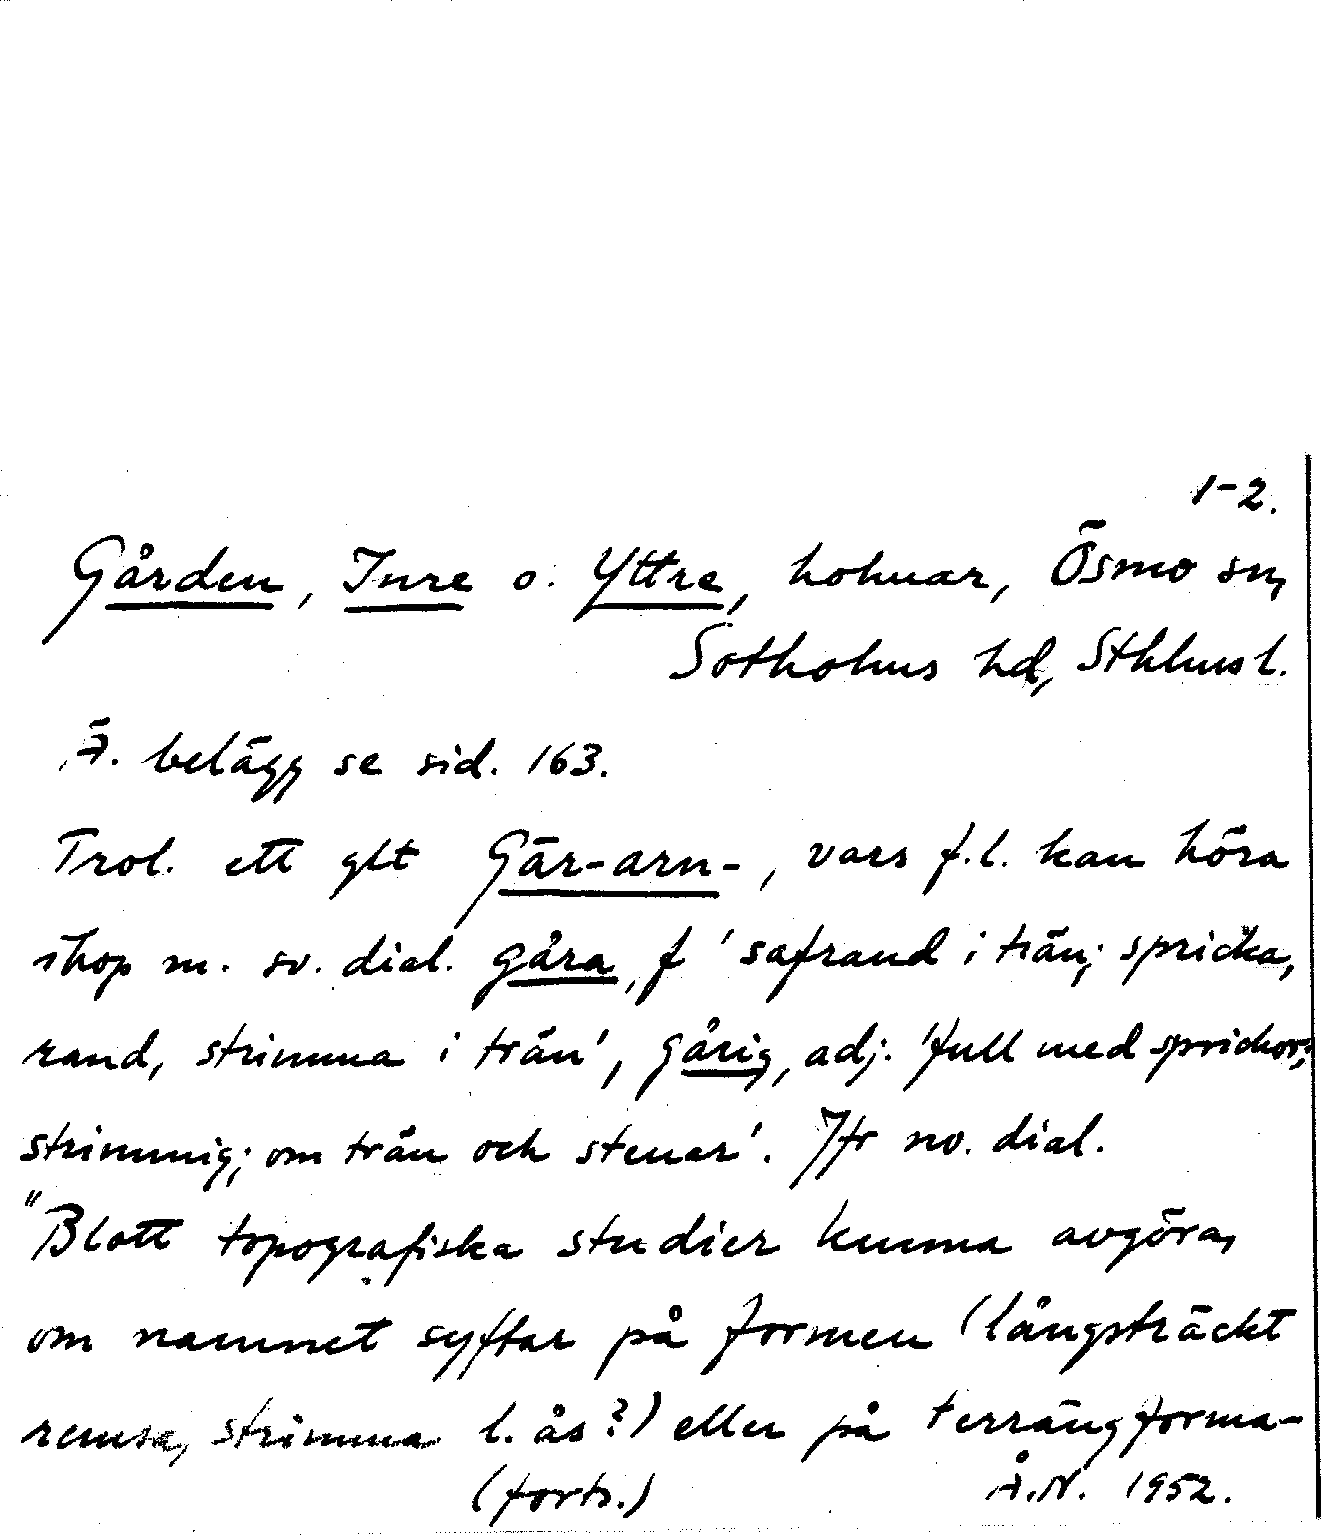 1-2.
Gården, Inre o. Yttre, holmar, Ösmo sn,
Sotholms hd, Sthlms l.
Ä. belägg se sid. 163.
Trol. ett glt Gār-arn-, vars f.l. kan höra
ihop m. sv. dial. gåra, f 'safrand i trän; spricka,
rand, strimma i trän', gårig, adj. 'full med sprickor;
strimmig; om trän och stenar'. Jfr no. dial.
"Blott topografiska studier kunna avgöra,
om namnet syftar på formen (långsträckt
remsa, strimma l. ås?) eller på terrängforma-
(forts.) Å.N. 1952.